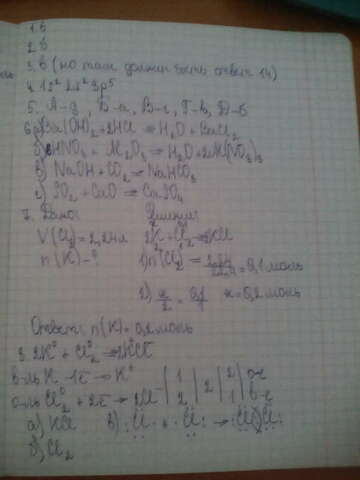 1. в
2. б
3. в (но там должен быть ответ 14)
4. 1s² 2s² 3p⁵
5. А-д, Б-а, В-г, Г-в, Д-б
6 а) Ba(OH)₂+2HCl = H₂O + BaCl₂
б) HNO₃ + Al₂O₃ = H₂O + 2Al(NO₃)₃
в) NaOH + CO₂ = NaHCO₃
г) SO₂ + CaO = CaSO₄
7. Дано: Решение:
V(Cl₂) = 2,24л 2K + Cl₂ = 2KCl
n(K) - ? 1) n(Cl₂) = = 0,1 моль
2) x/2 = x = 0,2 моль
Ответ: n(K) = 0,2 моль
8. 2K⁰ + Cl₂⁰ → 2KCl
в-ль K - 1e → K⁺ | 1 | 2 | 2 | о-е
о-ль Cl₂⁰ + 2e → 2Cl⁻ | 2 | 1 | в-е
а) KCl в) :Cl· + ·Cl: → :Cl:Cl:
б) Cl₂